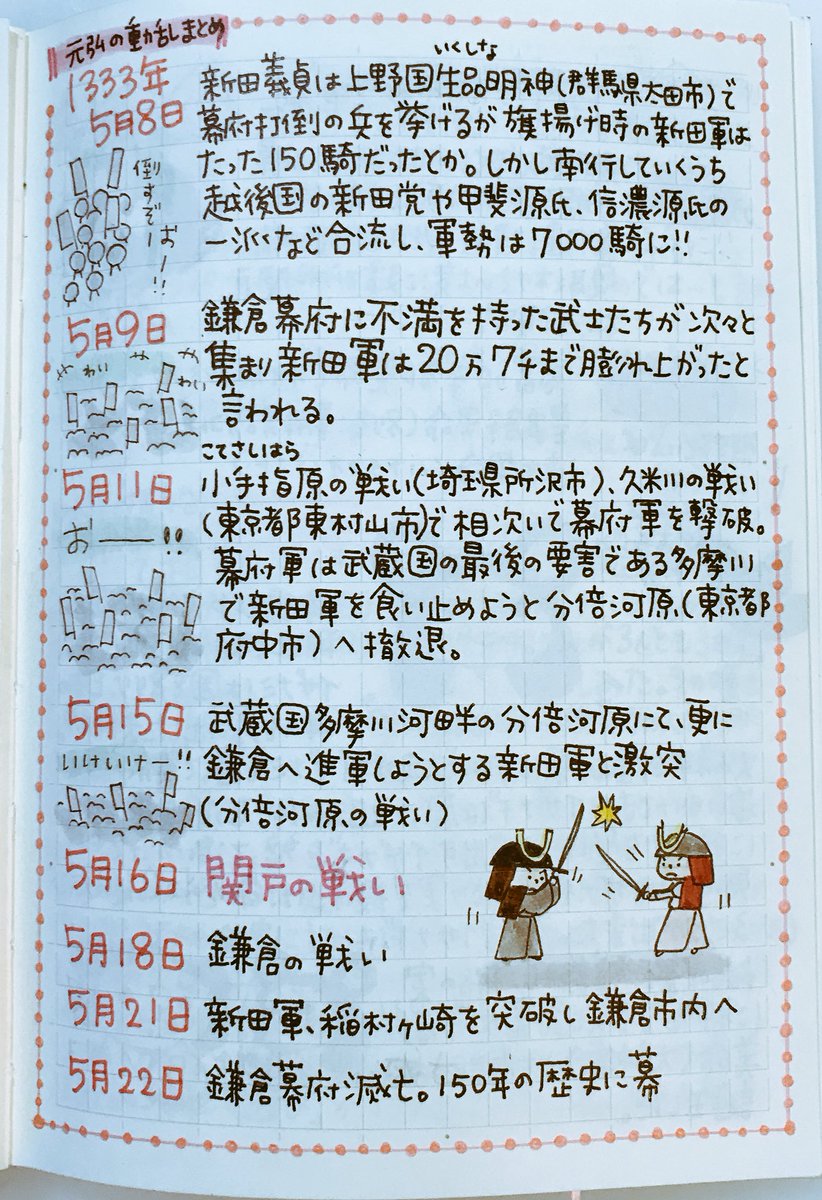 元弘の動乱まとめ
1333年
5月8日
いくしな
新田義貞は上野国生品明神(群馬県太田市)で
幕府打倒の兵を挙げるが旗揚げ時の新田軍は
たった150騎だったとか。しかし南行していくうち
越後国の新田党や甲斐源氏、信濃源氏の
一派など合流し、軍勢は7000騎に!!
倒すぞー
おー!!
5月9日
鎌倉幕府に不満を持った武士たちが次々と
集まり新田軍は20万7千まで膨れ上がったと
言われる。
わい
わい
こてさしはら
5月11日
小手指原の戦い(埼玉県所沢市)、久米川の戦い
(東京都東村山市)で相次いで幕府軍を撃破。
幕府軍は武蔵国の最後の要害である多摩川
で新田軍を食い止めようと分倍河原(東京都
府中市)へ撤退。
おー!!
5月15日
武蔵国多摩川河畔の分倍河原にて、更に
鎌倉へ進軍しようとする新田軍と激突
(分倍河原の戦い)
いけいけー!!
5月16日 関戸の戦い
5月18日 鎌倉の戦い
5月21日 新田軍、稲村ヶ崎を突破し鎌倉市内へ
5月22日 鎌倉幕府滅亡。150年の歴史に幕